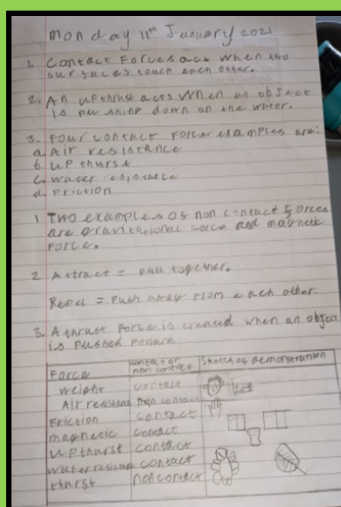 Monday 11th January 2021
1. Contact Forces act when two
surfaces touch each other.
2. An upthrust acts when an object
is pushing down on the water.
3. Four contact force examples are:
a. Air resistance
b. Upthurst
c. Water
d. Friction
1 Two examples of non contact forces
are gravitational force and magnetic
Force.
2 Attract = pull together.
Repel = Push away from each other.
3. A thrust force is created when an object
is pushed
Force contact or non contact Sketch of demonstration
weight contact
Air non contact
Friction contact
magnetic contact
upthurst contact
water contact
thurst noncontact